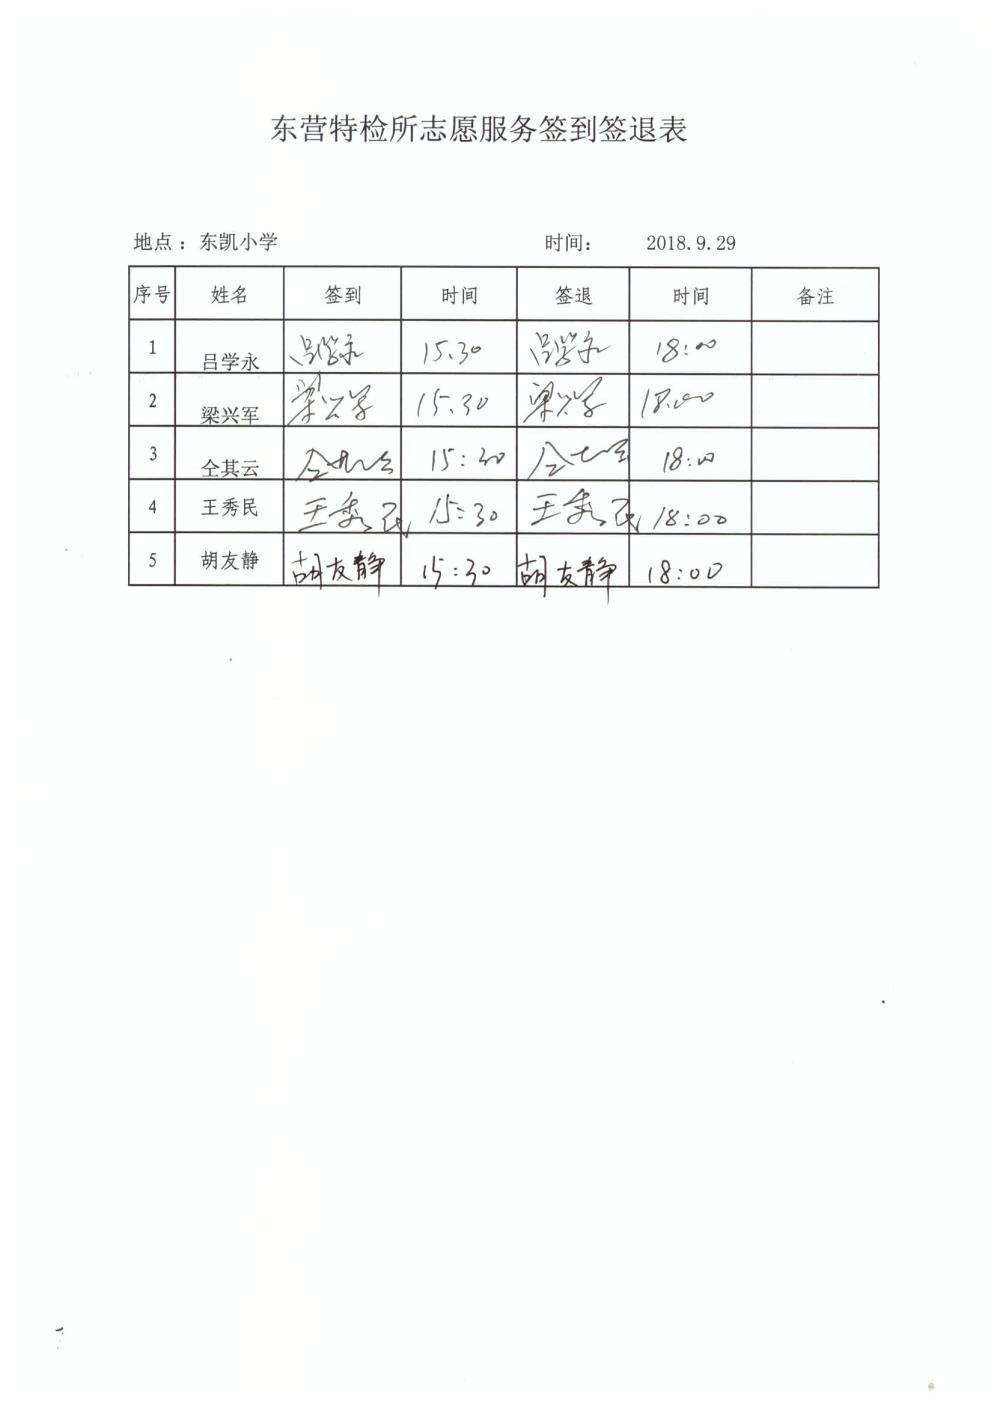 东营特检所志愿服务签到签退表
地点：东凯小学 时间： 2018.9.29
序号 姓名 签到 时间 签退 时间 备注
1 吕学永 吕学永 15.30 吕学永 18:00
2 梁兴军 梁兴军 15.30 梁兴军 18.00
3 仝其云 仝其云 15:30 仝其云 18:00
4 王秀民 王秀民 15:30 王秀民 18:00
5 胡友静 胡友静 15:30 胡友静 18:00